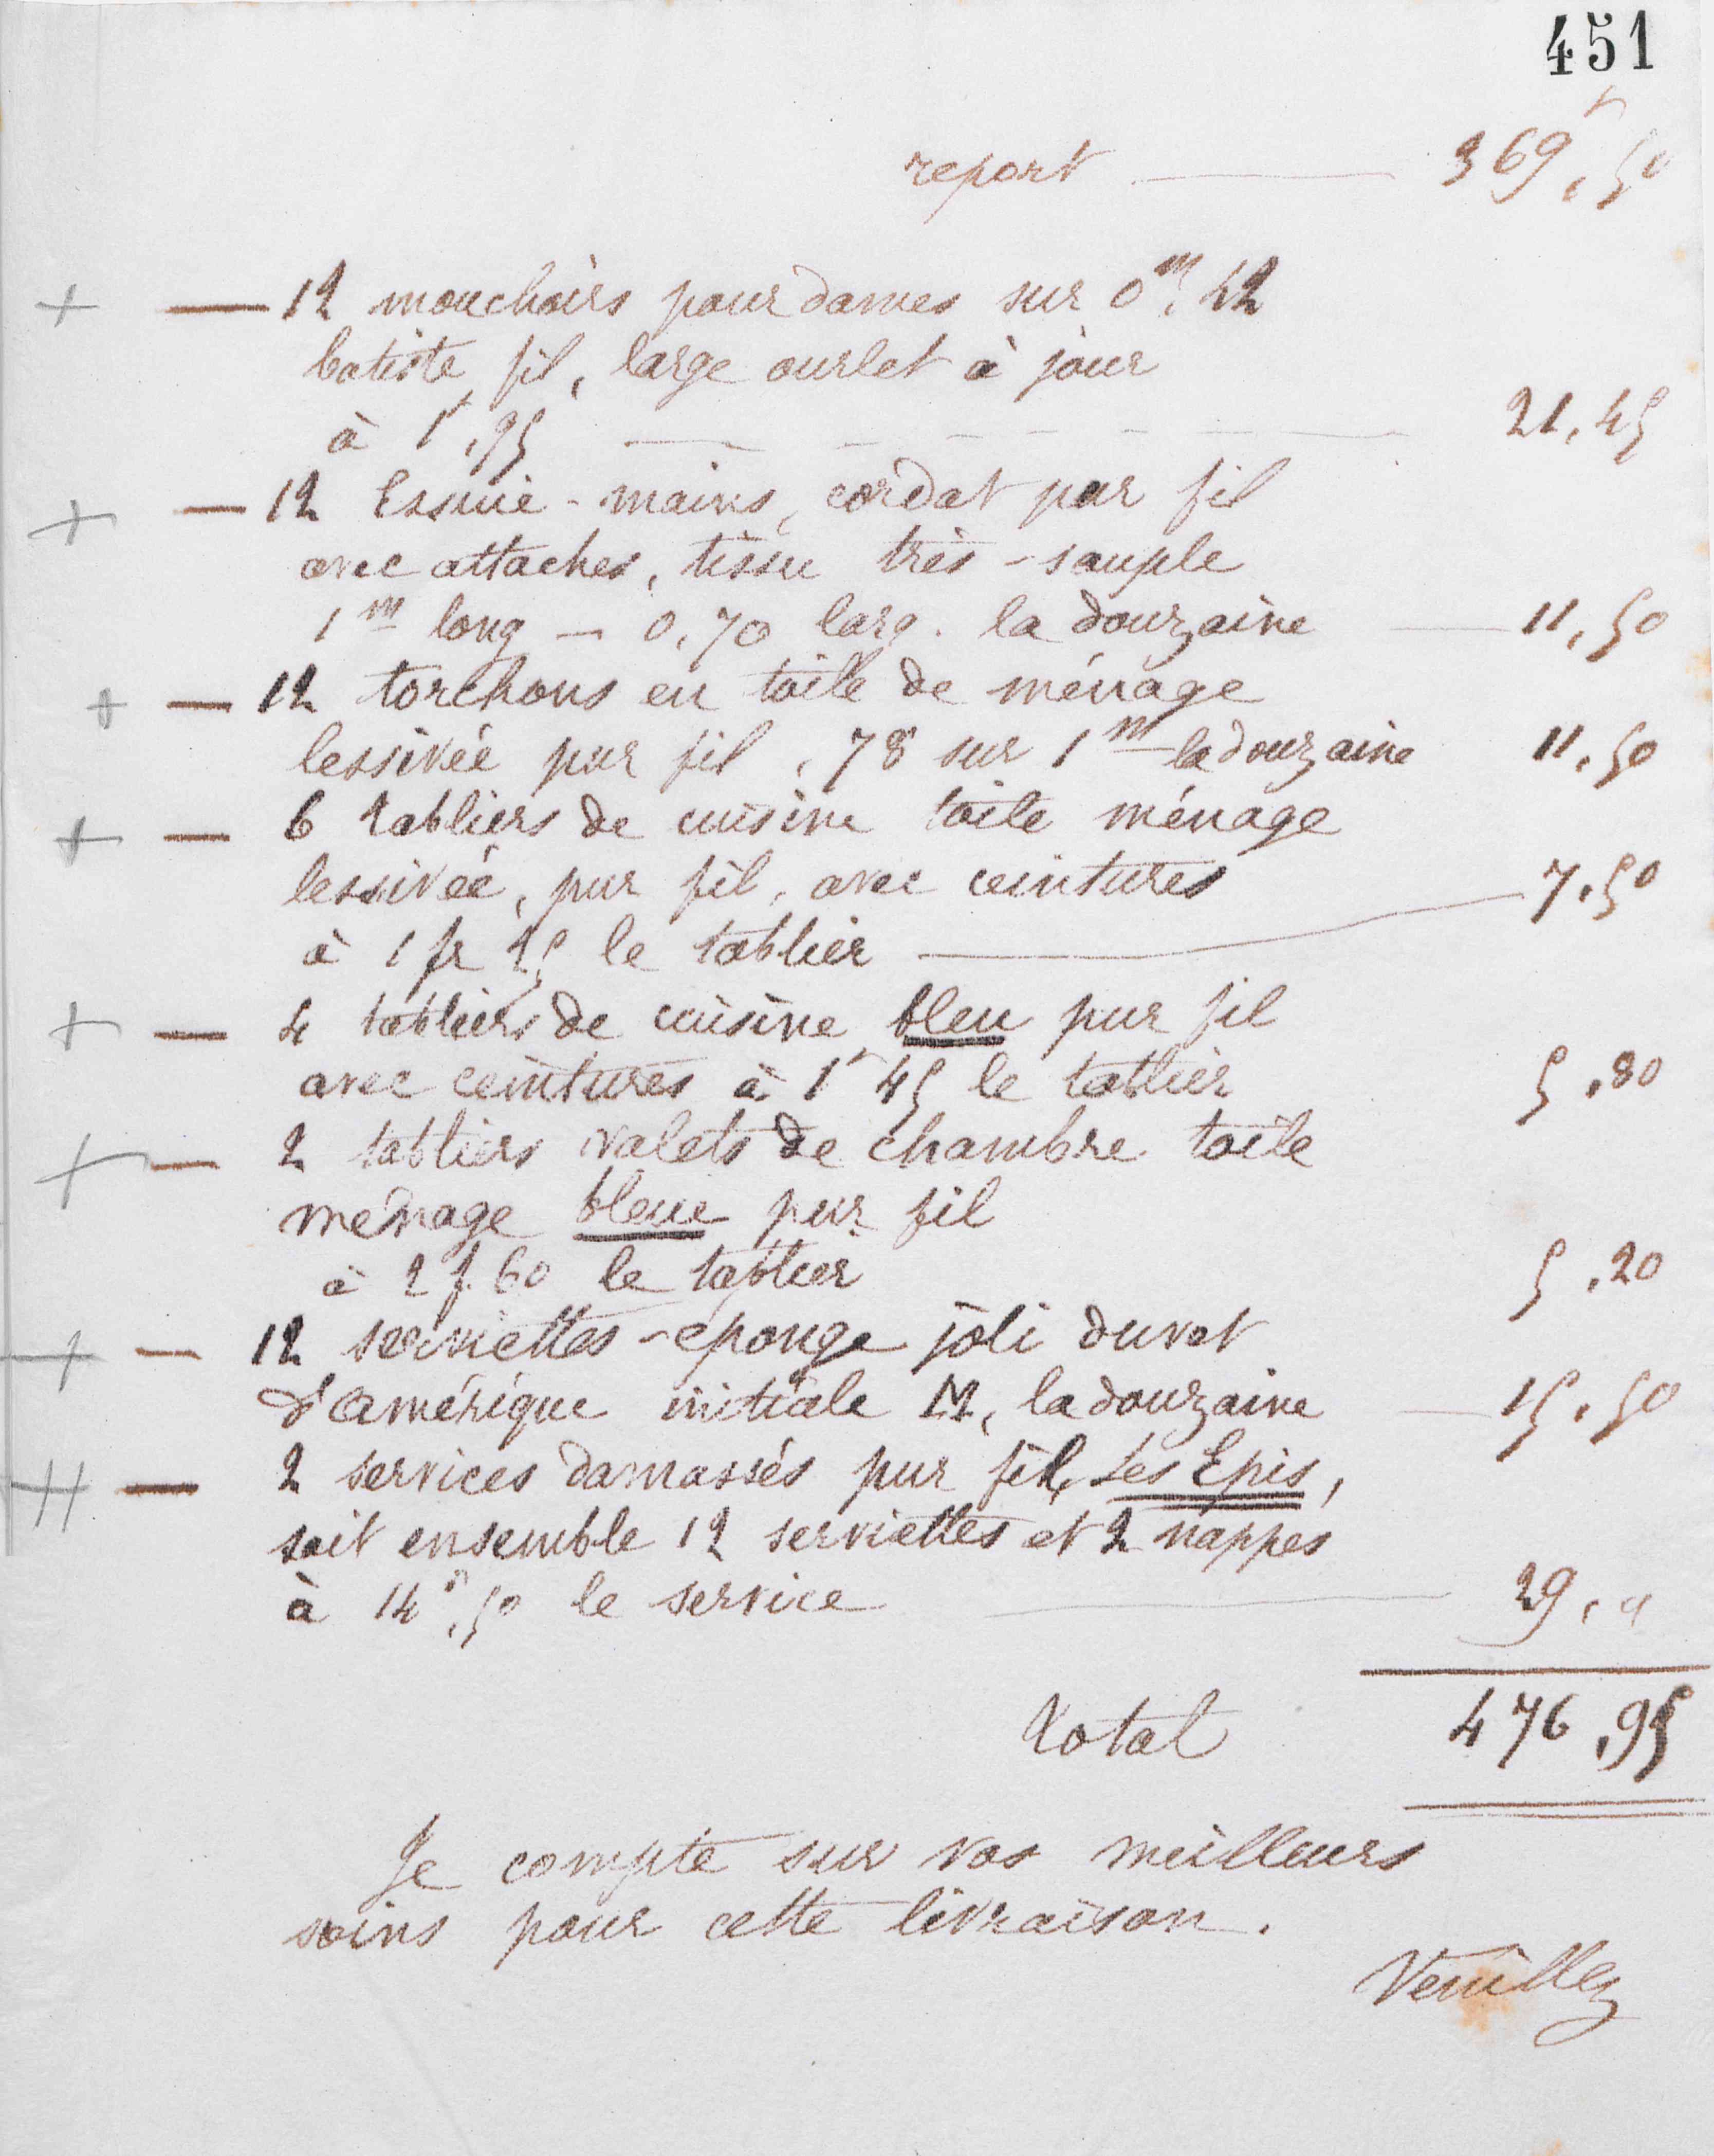 451
report 369f,50
+ — 12 mouchoirs pour dames sur 0m,42
batiste fil, large ourlet à jour
à 1f,95 21,45
+ — 12 Essuie-mains, cordat pur fil
avec attaches, tissu très-souple
1m long — 0,70 larg. la douzaine — 11,50
+ — 12 torchons en toile de ménage
lessivée pur fil, 78 sur 1m la douzaine 11,50
+ — 6 tabliers de cuisine toile ménage
lessivée, pur fil, avec ceintures
à 1 fr 25 le tablier — 7,50
+ — 4 tabliers de cuisine bleu pur fil
avec ceintures à 1f 45 le tablier 5,80
+ — 2 tabliers valets de chambre toile
ménage bleue pur fil
à 2f.60 le tablier 5,20
+ — 12 serviettes-eponge joli duvet
d'Amérique initiale M, la douzaine — 15,50
++ — 2 services damassés pur fil, Les Epis,
soit ensemble 12 serviettes et 2 nappes
à 14f,50 le service — 29,"
Total 476,95
Je compte sur vos meilleurs
soins pour cette livraison.
Veuillez